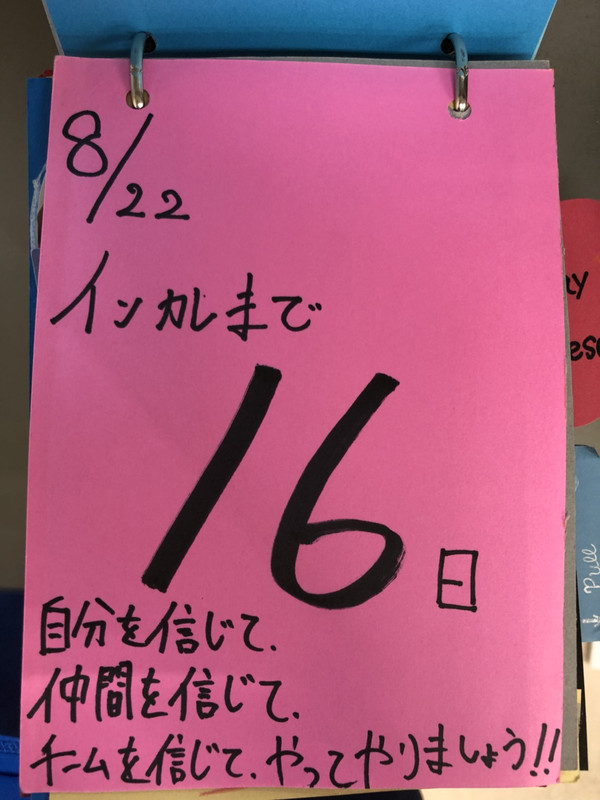 8/22
インカレまで
16日
自分を信じて、
仲間を信じて、
チームを信じて、やってやりましょう!!
Pull